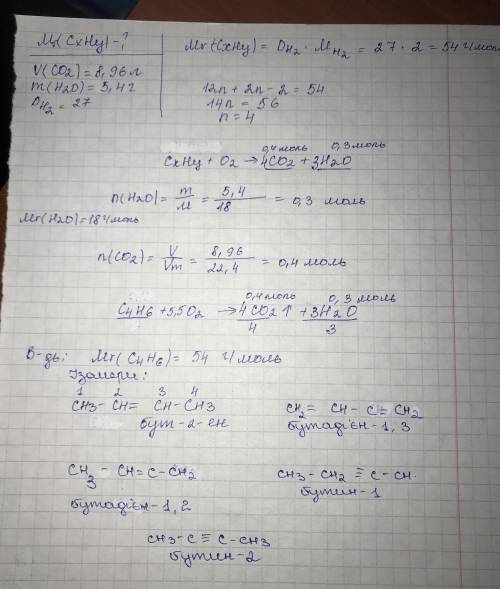 M(CxHy) - ?
V(CO2) = 8,96 л
m(H2O) = 5,4 г
DH2 = 27
Mr(CxHy) = DH2 · MH2 = 27 · 2 = 54 г/моль
12n + 2n - 2 = 54
14n = 56
n = 4
0,4 моль 0,3 моль
CxHy + O2 → 4CO2 + 3H2O
n(H2O) = m/M = 5,4/18 = 0,3 моль
Mr(H2O) = 18 г/моль
n(CO2) = V/Vm = 8,96/22,4 = 0,4 моль
0,4 моль 0,3 моль
C4H6 + 5,5O2 → 4CO2↑ + 3H2O
4 3
В-дь: Mr(C4H6) = 54 г/моль
Ізомери:
1 2 3 4
CH3 - CH = CH - CH3
бут-2-ен
CH2 = CH - C = CH2
бутадієн-1,3
CH3 - CH = C - CH2
бутадієн-1,2
CH3 - CH2 ≡ C - CH.
бутин-1
CH3 - C ≡ C - CH3
бутин-2